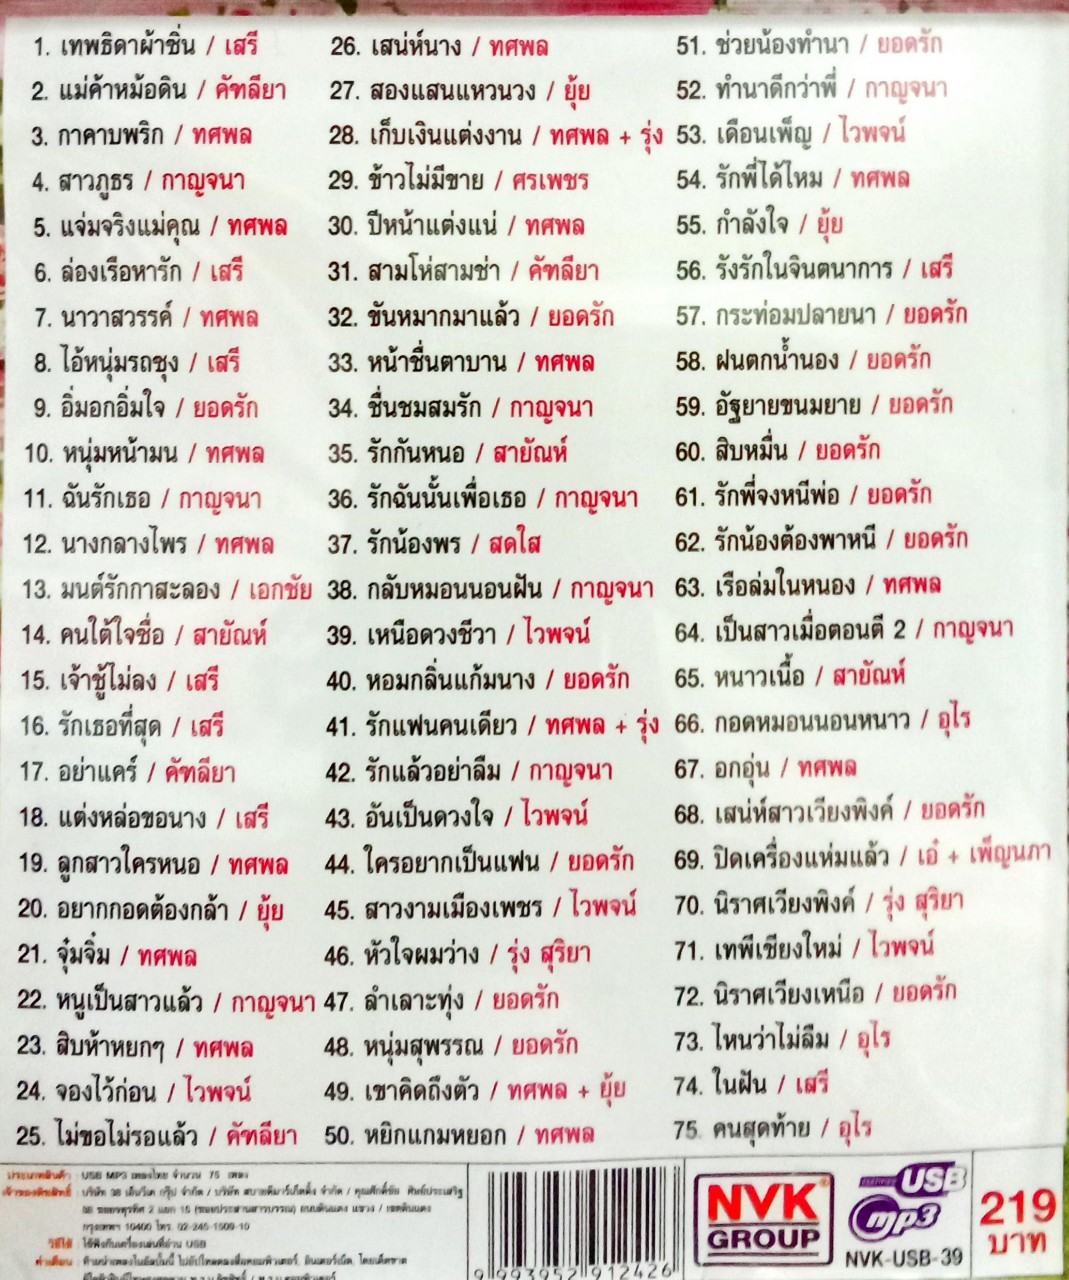 1. เทพธิดาผ้าซิ่น / เสรี
2. แม่ค้าหม้อดิน / คัฑลียา
3. กาคาบพริก / ทศพล
4. สาวภูธร / กาญจนา
5. แจ่มจริงแม่คุณ / ทศพล
6. ล่องเรือหารัก / เสรี
7. นาวาสวรรค์ / ทศพล
8. ไอ้หนุ่มรถซุง / เสรี
9. อิ่มอกอิ่มใจ / ยอดรัก
10. หนุ่มหน้ามน / ทศพล
11. ฉันรักเธอ / กาญจนา
12. นางกลางไพร / ทศพล
13. มนต์รักกาสะลอง / เอกชัย
14. คนใต้ใจซื่อ / สายัณห์
15. เจ้าชู้ไม่ลง / เสรี
16. รักเธอที่สุด / เสรี
17. อย่าแคร์ / คัฑลียา
18. แต่งหล่อขอนาง / เสรี
19. ลูกสาวใครหนอ / ทศพล
20. อยากกอดต้องกล้า / ยุ้ย
21. จุ๋มจิ๋ม / ทศพล
22. หนูเป็นสาวแล้ว / กาญจนา
23. สิบห้าหยกๆ / ทศพล
24. จองไว้ก่อน / ไวพจน์
25. ไม่ขอไม่รอแล้ว / คัฑลียา
26. เสน่ห์นาง / ทศพล
27. สองแสนแหวนวง / ยุ้ย
28. เก็บเงินแต่งงาน / ทศพล + รุ่ง
29. ข้าวไม่มีขาย / ศรเพชร
30. ปีหน้าแต่งแน่ / ทศพล
31. สามโห่สามช่า / คัฑลียา
32. ขันหมากมาแล้ว / ยอดรัก
33. หน้าชื่นตาบาน / ทศพล
34. ชื่นชมสมรัก / กาญจนา
35. รักกันหนอ / สายัณห์
36. รักฉันนั้นเพื่อเธอ / กาญจนา
37. รักน้องพร / สดใส
38. กลับหมอนนอนฝัน / กาญจนา
39. เหนือดวงชีวา / ไวพจน์
40. หอมกลิ่นแก้มนาง / ยอดรัก
41. รักแฟนคนเดียว / ทศพล + รุ่ง
42. รักแล้วอย่าลืม / กาญจนา
43. อันเป็นดวงใจ / ไวพจน์
44. ใครอยากเป็นแฟน / ยอดรัก
45. สาวงามเมืองเพชร / ไวพจน์
46. หัวใจผมว่าง / รุ่ง สุริยา
47. ลำเลาะทุ่ง / ยอดรัก
48. หนุ่มสุพรรณ / ยอดรัก
49. เขาคิดถึงตัว / ทศพล + ยุ้ย
50. หยิกแกมหยอก / ทศพล
51. ช่วยน้องทำนา / ยอดรัก
52. ทำนาดีกว่าพี่ / กาญจนา
53. เดือนเพ็ญ / ไวพจน์
54. รักพี่ได้ไหม / ทศพล
55. กำลังใจ / ยุ้ย
56. รังรักในจินตนาการ / เสรี
57. กระท่อมปลายนา / ยอดรัก
58. ฝนตกน้ำนอง / ยอดรัก
59. อัฐยายขนมยาย / ยอดรัก
60. สิบหมื่น / ยอดรัก
61. รักพี่จงหนีพ่อ / ยอดรัก
62. รักน้องต้องพาหนี / ยอดรัก
63. เรือล่มในหนอง / ทศพล
64. เป็นสาวเมื่อตอนตี 2 / กาญจนา
65. หนาวเนื้อ / สายัณห์
66. กอดหมอนนอนหนาว / อุไร
67. อกอุ่น / ทศพล
68. เสน่ห์สาวเวียงพิงค์ / ยอดรัก
69. ปิดเครื่องแห่มแล้ว / เอ๋ + เพ็ญนภา
70. นิราศเวียงพิงค์ / รุ่ง สุริยา
71. เทพีเชียงใหม่ / ไวพจน์
72. นิราศเวียงเหนือ / ยอดรัก
73. ไหนว่าไม่ลืม / อุไร
74. ในฝัน / เสรี
75. คนสุดท้าย / อุไร
ประเภทสินค้า : USB MP3 เพลงไทย จำนวน 75 เพลง
กรุงเทพฯ 10400 โทร. 02-245-1509-10
วิธีใช้ : ใช้ฟังกับเครื่องเล่นที่อ่าน USB
9 993952 912426
NVK
GROUP
USB
mp3
NVK-USB-39
219
บาท